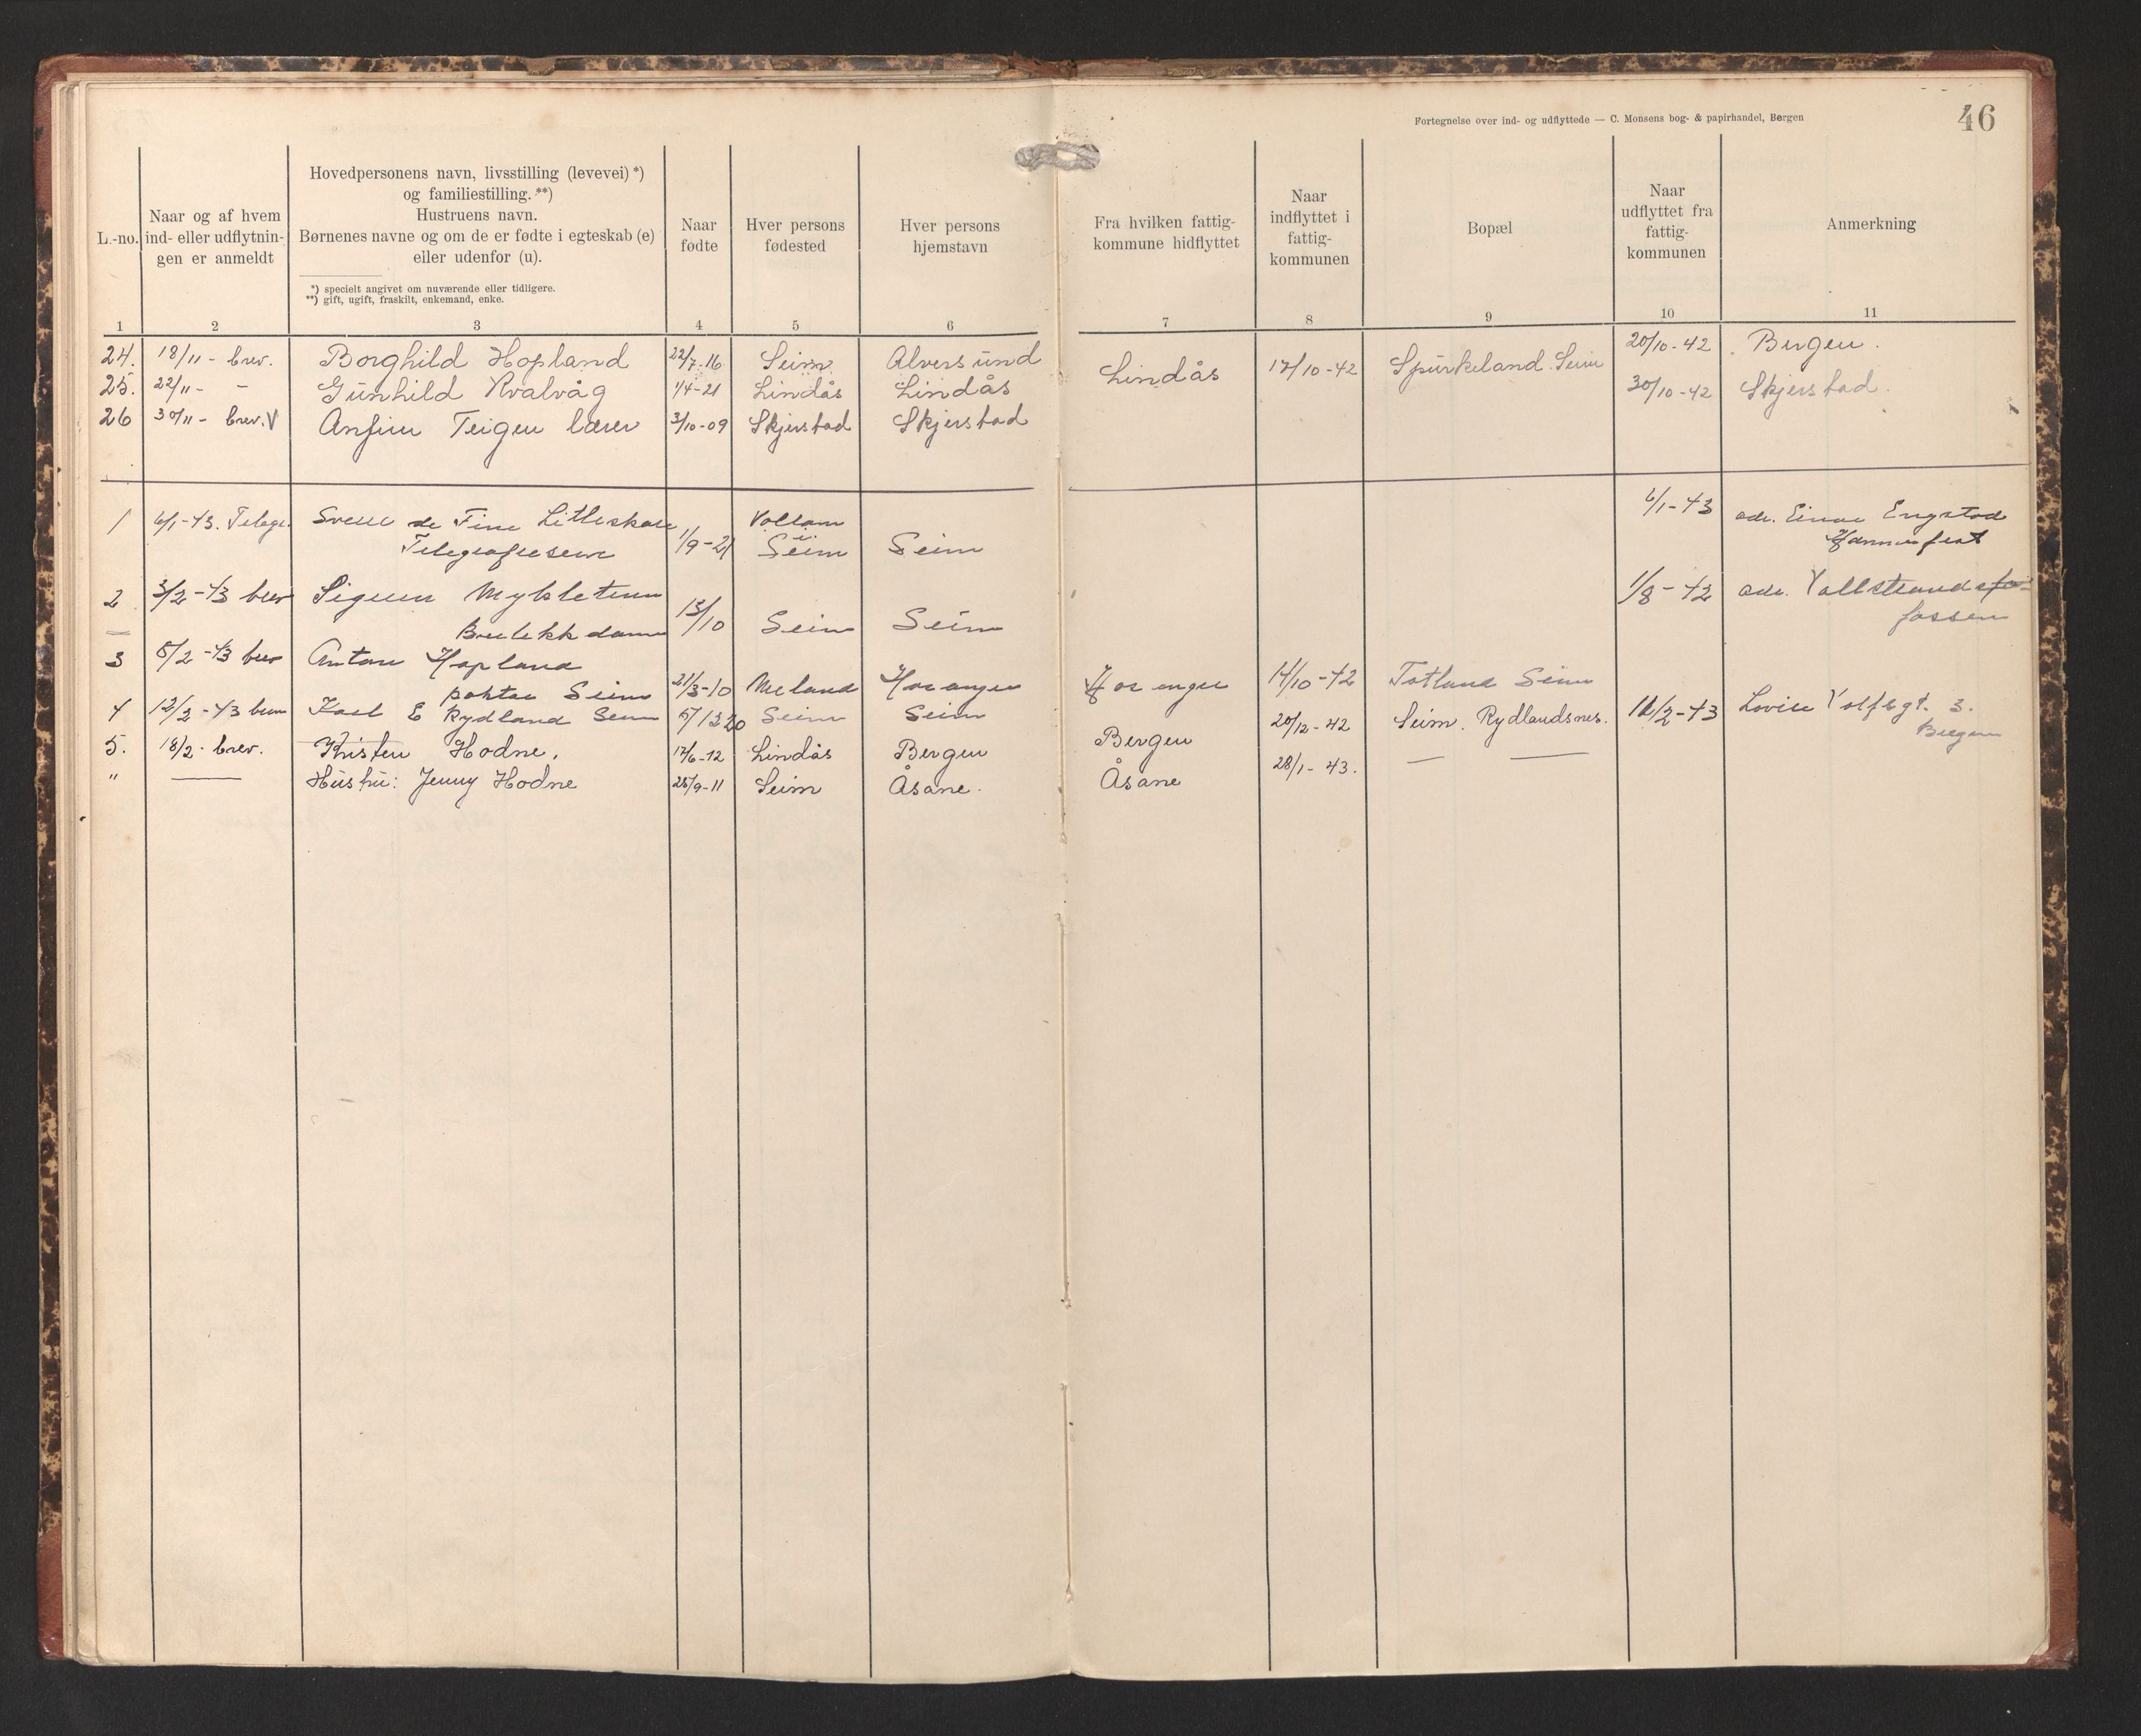 Fortegnelse over ind- og udflyttede — C. Monsens bog- & papirhandel, Bergen
46
L.-no.
Naar og af hvem
ind- eller udflytnin-
gen er anmeldt
Hovedpersonens navn, livsstilling (levevei) *)
og familiestilling. **)
Hustruens navn.
Børnenes navne og om de er fødte i egteskab (e)
eller udenfor (u).
*) specielt angivet om nuværende eller tidligere.
**) gift, ugift, fraskilt, enkemand, enke.
Naar
fødte
Hver persons
fødested
Hver persons
hjemstavn
Fra hvilken fattig-
kommune hidflyttet
Naar
indflyttet i
fattig-
kommunen
Bopæl
Naar
udflyttet fra
fattig-
kommunen
Anmerkning
1 2 3 4 5 6 7 8 9 10 11
24. 18/11 - brev. Borghild Hopland 22/7-16 Seim Alversund 20/10-42 Bergen.
25. 22/11 - - Gunhild Kvalvåg 1/4-21 Lindås Lindås Lindås 17/10-42 Spurkeland. Seim
26 30/11 - brev. V Anfinn Teigen lærer 3/10-09 Skjerstad Skjerstad 30/10-42 Skjerstad.
1 6/1-43. de Fine Litleskare 6/1-43 adr. Einar Engstad
1/9-21 Seim Seim Hammerfest
2 3/2-43 brev Sigrun Mykletun 1/8-42 adr.
13/10 Seim Seim fossen
3 5/2-43 brev Anton Hopland
Seim 21/3-10 Meland Hosanger Hosanger 14/10-42 Totland Seim
4 12/2-43 brev Karl E Rydland Seim Seim Seim 11/2-43 Bergen
5. 18/2 - brev. Kristen Hodne. 17/6-12 Lindås Bergen Bergen 20/12-42 Seim. Rydlandsnes.
" — Hustru: Jenny Hodne 25/9-11 Seim Åsane. Åsane 28/1-43. — —